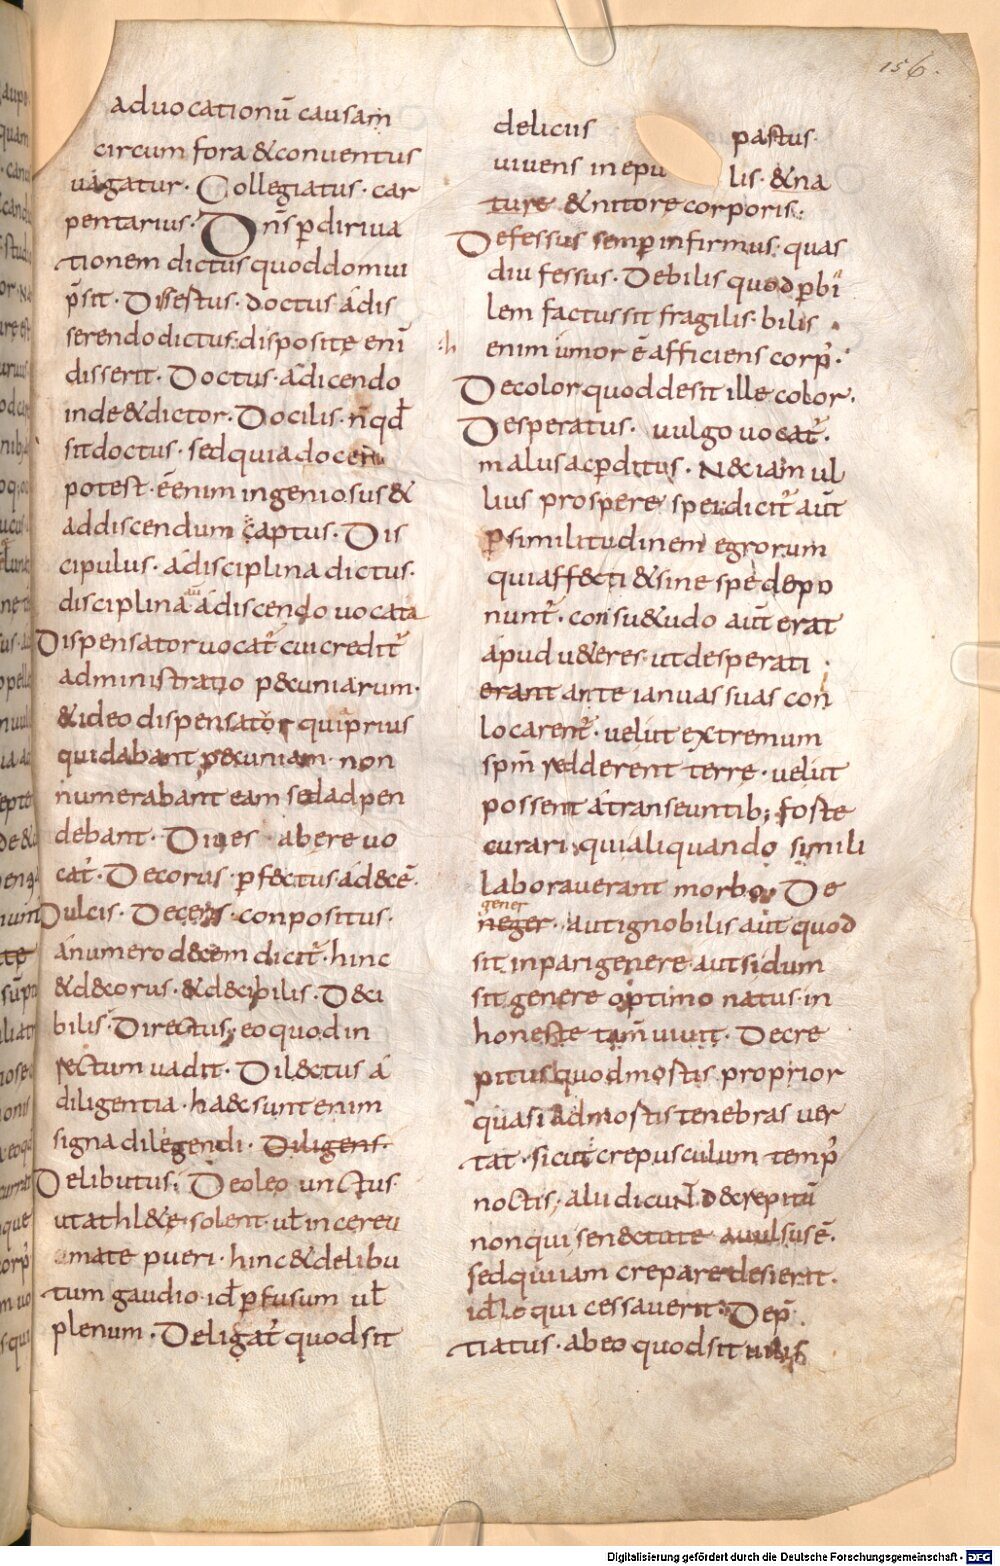 156.
aduocationū causam
circum fora &conuentus
uagatur. Collegiatus. car
pentarius. Dn̄s ꝑ diriua
tionem dictus quoddomui
p̄sit. Dissertus. doctus ádis
serendo dictus. disposite enī
disserit. Doctus. ádicendo
inde &dictor. Docilis. n̄ qđ
sit doctus. sed quia doceri
potest. ē enim ingeniosus &
addiscendum captus. Dis
cipulus. ádisciplina dictus.
disciplina ádiscendo uocata
Dispensator uocat᷑ cui credit᷑
administratio p&cuniarum.
&ideo dispensator quia prius
qui dabant p&cuniam. non
numerabant eam sed adpen
debant. Diues abere uo
cat᷑. Decorus. ꝑfectus. ádecē.
Dulcis. Decens. conpositus.
ánumero decem dicit᷑. hinc
&d&corus. &d&cibilis. D&ci
bilis. Directus, eo quod in
rectum uadit. Dilectus á
diligentia. haec sunt enim
signa diligendi. Diligens.
Delibutus. Deoleo unctus.
ut athl&e solent. ut̄ in cereu
mate pueri. hinc &delibu
tum gaudio. id ꝑfusum uł
plenum. Deligat᷑ quod sit
deliciis pastus.
uiuens in epulis. &na
ture &nitore corporis.
:h
Defessus semꝑ infirmus. quas
diu fessus. Debilis quod ꝑ bi
lem factus sit fragilis. bilis
enim umor ē afficiens corp᷒.
Decolor quod desit ille color.
Desperatus. uulgo uocat᷑.
malus ac ꝑditus. Nec iam ul
lius prospere spei. dicit᷑ aut̄
ꝑ similitudinem egrorum
qui affecti &sine spe depo
nunt᷑. consu&udo aut̄ erat
apud u&eres. ut desperati
erant ante ianuas suas con
locarent᷑. uelut extremum
spm̄ redderent terre. uelut
possent átranseuntib; foste
curari. qui aliquando simili
laborauerant morbo. De
gener
neger. aut ignobilis aut quod
sit inpari genere. aut si dum
sit genere optimo natus. in
honeste tam̄ uiuit. Decre
pitus quod mostis proprior
quasi ad mostis tenebras uer
tat. sicut crepusculum temp᷒
noctis. alii dicunt decrepitū
non qui senectute auulsus ē.
sed qui iam crepare desierit.
id loqui cessauerit. Dep̄
tiatus. ab eo quod sit uilis
Digitalisierung gefördert durch die Deutsche Forschungsgemeinschaft - DFG